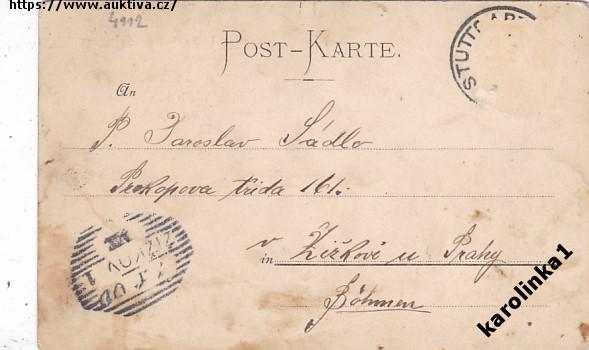 https://www.auktiva.cz/
4912
POST-KARTE.
STUTTGART
An
P. Jaroslav Sádlo
Prokopova třída 161.
v Žižkově u Prahy
in
Böhmen
ŽIŽKOV
karolinka1